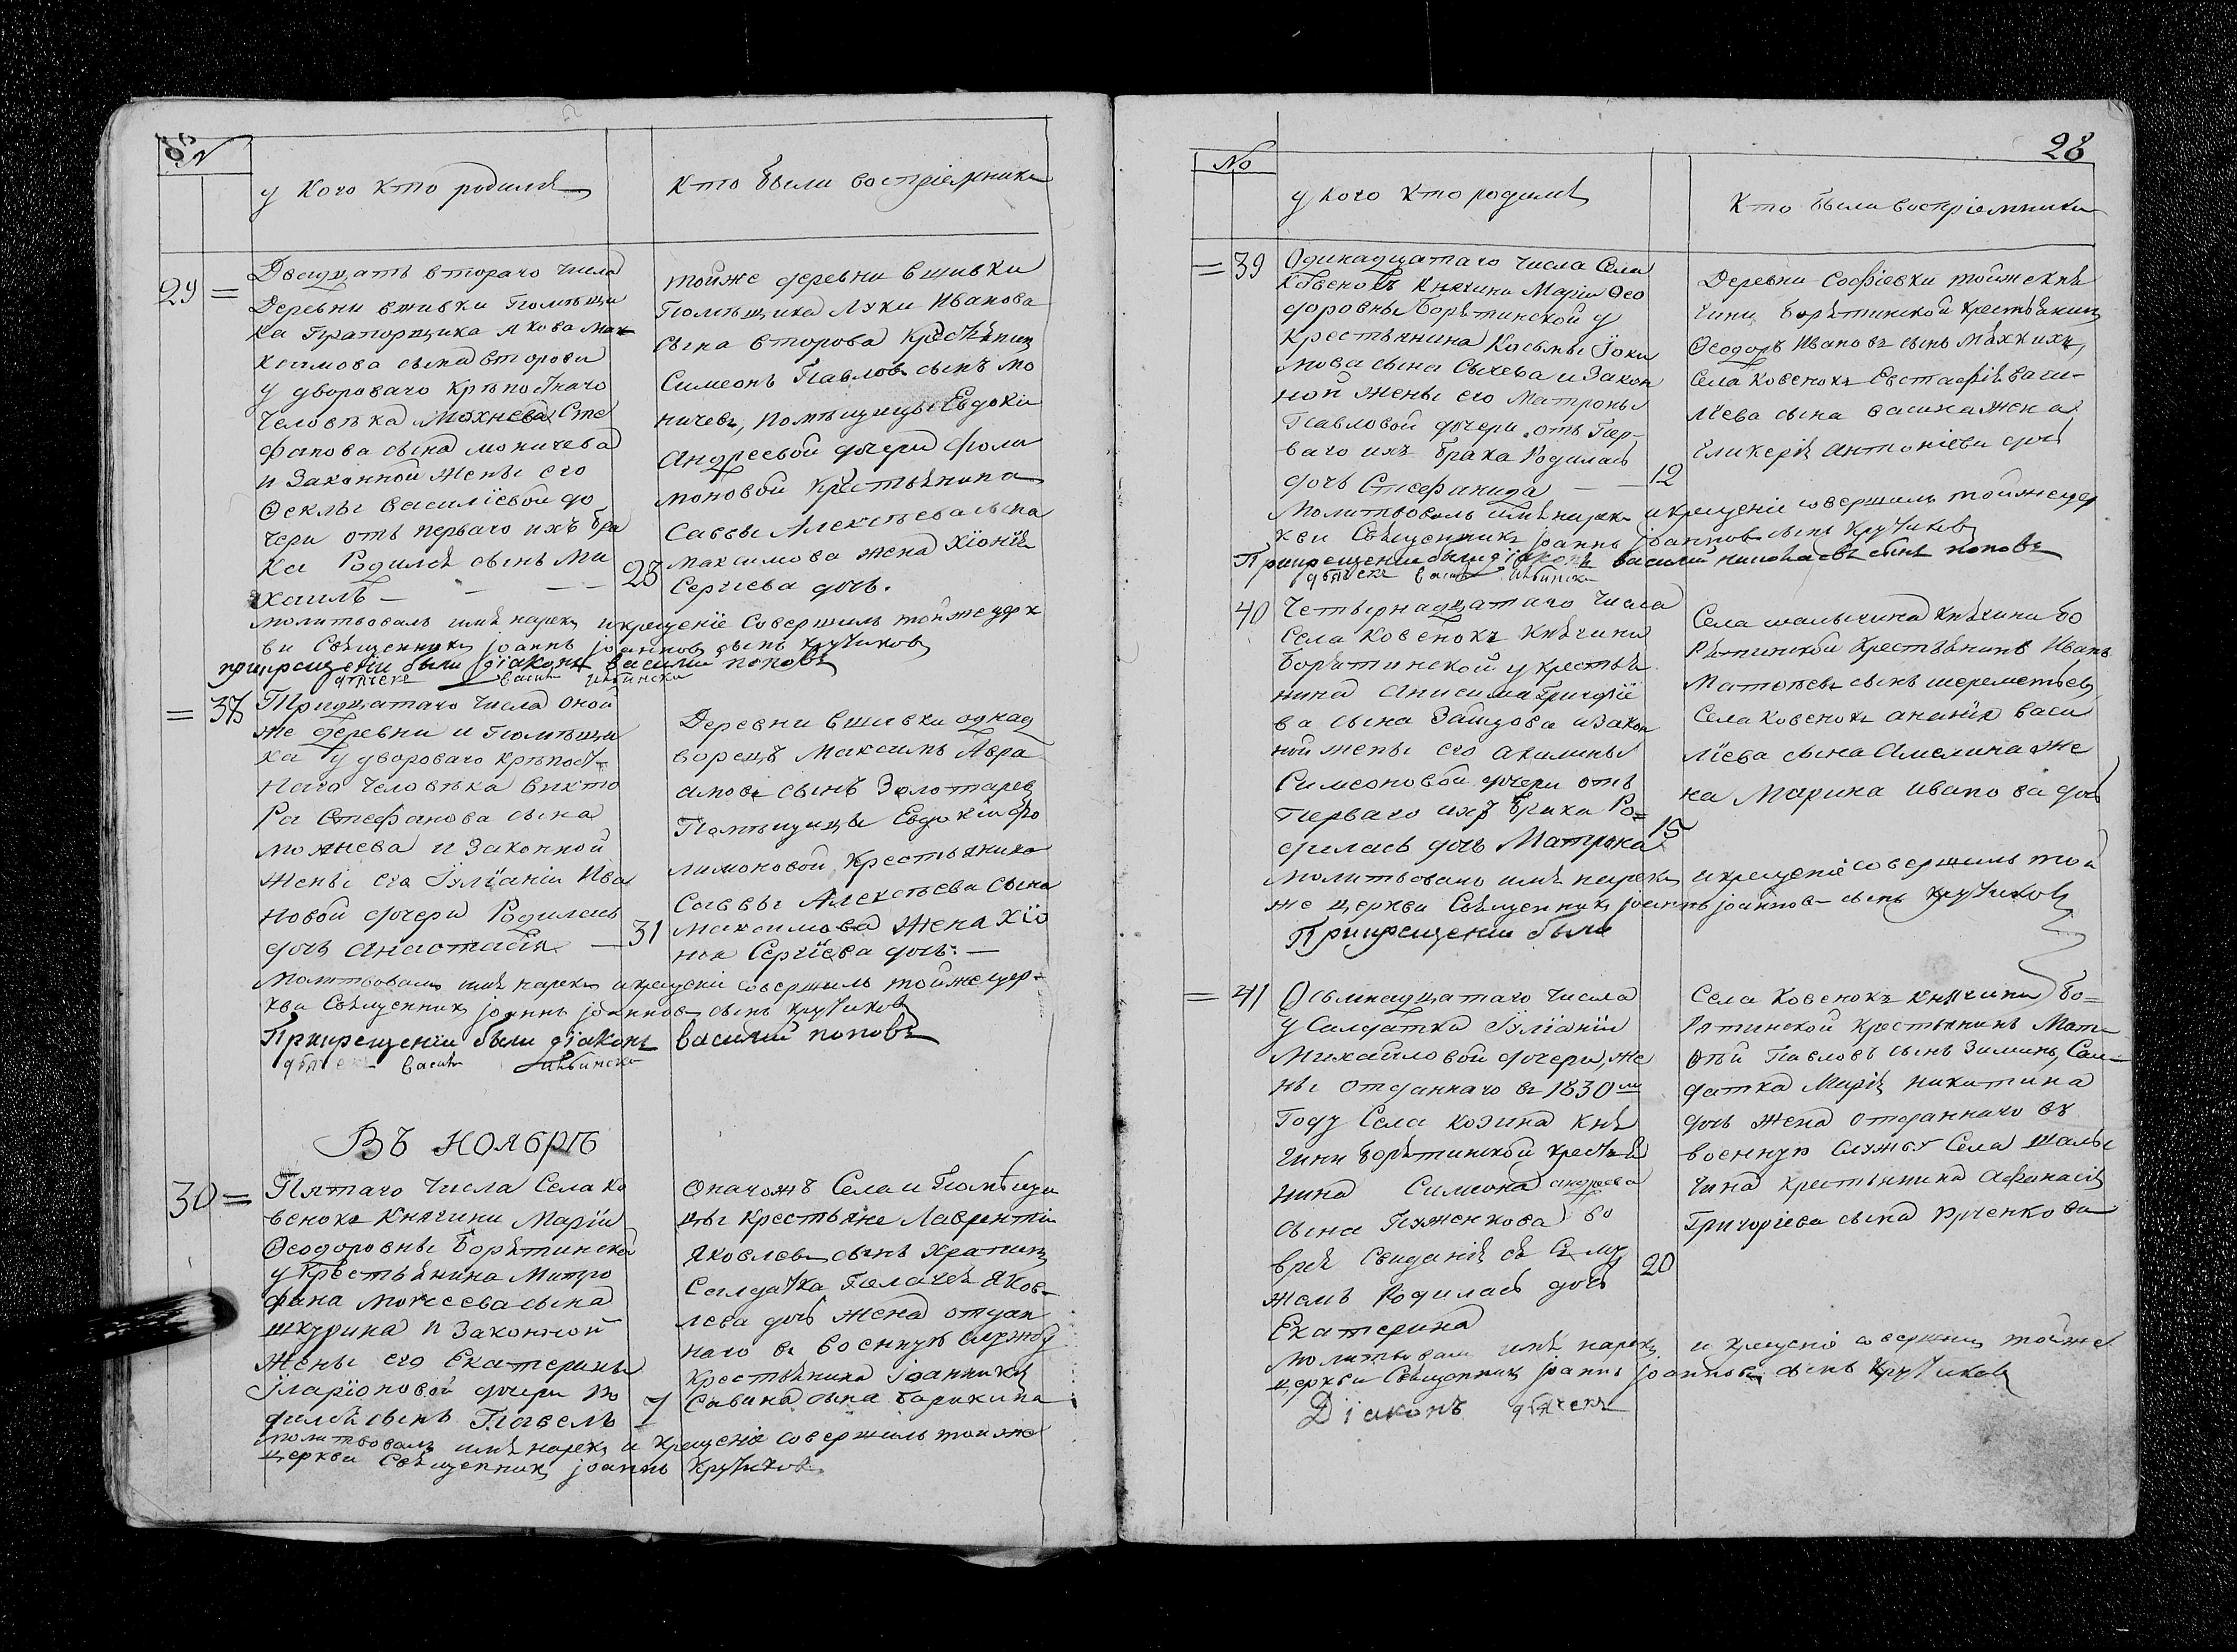 №
у кого кто родился
кто были воспріемники
29 =
Двадцать втораго числа
Деревни вшивки Помѣщи
ка Прапорщика Якова Мак
симова сына второва
у двороваго крѣпостнаго
человѣка Михнева Сте
фанова сына моничева
и Законной жены его
Ѳеклы Василіевой до
чери отъ перваго ихъ бра
ка Родился сынъ Ми
хаилъ — — —
28
тойже деревни вшивки
Помѣщика Луки Иванова
сына второва Крестьянинъ
Симеонъ Павловъ сынъ мо
ничевъ, помѣщицы Евдокіи
Андреевой дочери фили
моновой крестьянина
Саввы Алексѣева сына
максимова жена Хіонія
Сергіева дочь.
молитвовалъ имя нарекъ и крещеніе совершилъ тойже церк
ви Священникъ Іоаннъ Іоанновъ сынъ Крутиковъ
при крещеніи были діаконъ Василій поповъ
дьячекъ
= 38
Тридцатаго числа оной
же деревни и Помѣщи
ка у двороваго крѣпост
наго человѣка викто
ра Стефанова сына
и Законной
жены его Іуліаніи Ива
новой дочери Родилась
дочь Анастасія —
31
Деревни вшивки однод
ворецъ Максимъ Авра
амовъ сынъ Золотаревъ
Помѣщицы Евдокіи фи
лимоновой крестьянина
Саввы Алексѣева сына
максимова жена Хіо
нія Сергіева дочь. —
молитвовалъ имя нарекъ и крещеніе совершилъ тойже цер-
кви Священникъ Іоаннъ Іоанновъ сынъ Крутиковъ
При крещеніи были діаконъ Василій поповъ
дьячекъ
Въ ноябрѣ
30 =
Пятаго числа Села Ко
венокъ Княгини Маріи
Ѳеодоровны Борятинской
у крестьянина Митро
фана Моисеева сына
шкурина и Законной
жены его Екатерины
Иларіоновой дочери Ро
дился сынъ Павелъ
7
Оногожъ Села и Помѣщи
цы крестьяне Лаврентій
Яковлевъ сынъ
Салдатка Пелагея Яков-
лева дочь жена отдан
наго въ военную службу
крестьянина Іоанникія
Савина сына
молитвовалъ имя нарекъ и крещеніе совершилъ тойже
церкви Священникъ Іоаннъ Крутиковъ
28
№
у кого кто родился
Кто были воспріемники
= 39
Одинадцатаго числа Села
Ковенокъ Княгини Маріи Ѳео
доровны Борятинской у
Крестьянина Косьмы Іоки
мова сына Сычева и Закон
ной жены его Матроны
Павловой дочери отъ Пер-
ваго ихъ брака Родилась
дочь Стефанида — —
12
Деревни Софіевки тойже кня
гини Борятинской Крестьянинъ
Ѳеодоръ Ивановъ сынъ
Села Ковенокъ Евстафія васи-
ліева сына жена
Гликерія Антоніева дочь
молитвовалъ имя нарекъ и крещеніе совершилъ тойже цер
кви Священникъ Іоаннъ Іоанновъ сынъ Крутиковъ
При крещеніи были діаконъ Василій николаевъ сынъ поповъ
дьячекъ
40
Четырнадцатаго числа
Села Ковенокъ Княгини
Борятинской у крестья
нина Анисима Григорiе
ва сына Зайцова и Закон
ной жены его Акилины
Симеоновой дочери отъ
перваго ихъ брака Ро=
дилась дочь Матрона
15
Села шалыгина Княгини Бо
рятинской Крестьянинъ Иванъ
Матѳеевъ сынъ шереметьевъ
Села Ковенокъ Ананія васи
ліева сына Амелина же
на Марина Иванова дочь
молитвовалъ имя нарекъ и крещеніе совершилъ той
же церкви Священникъ Іоаннъ Іоанновъ сынъ Крутиковъ
При крещеніи были
= 41
Осьмнадцатаго числа
у Салдатки Іуліаніи
Михайловой дочери, же
ны отданнаго въ 1830мъ
Году Села Козина Кня
гини Борятинской крестья
нина Симеона андреева
сына во
врѣмя Свиданія съ Ея му
жемъ Родилась дочь
Екатерина
20
Села Ковенокъ Княгини Бо=
рятинской Крестьянинъ Мат-
ѳей Павловъ сынъ Зиминъ, Сал-
датка Марія Никитина
дочь жена отданнаго въ
военную службу Села шалы
гина крестьянина Афанасія
Григоріева сына
молитвовалъ имя нарекъ и крещеніе совершилъ тойже
церкви Священникъ Іоаннъ Іоанновъ сынъ Крутиковъ
Діаконъ дьячекъ